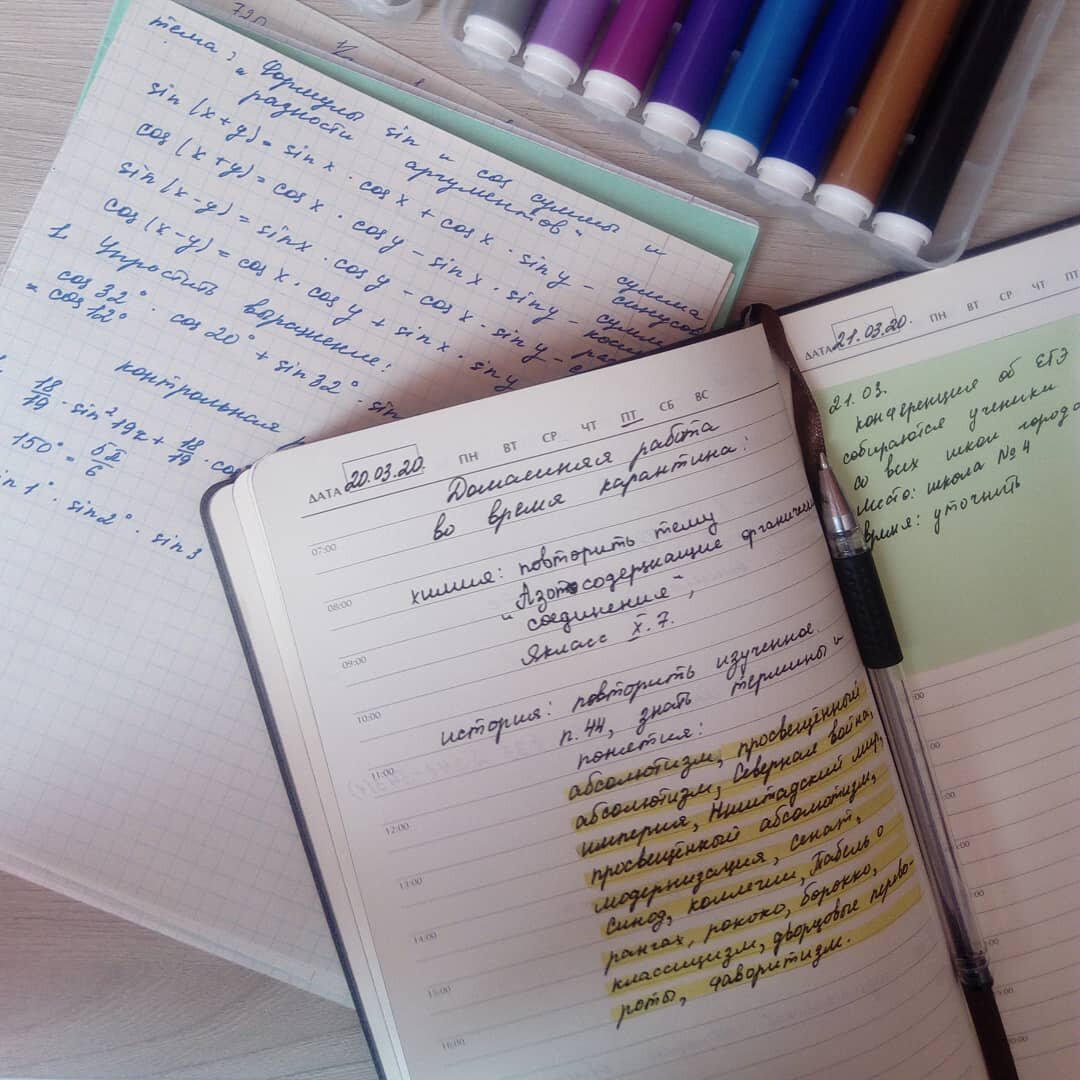 тема: "Формулы sin и cos суммы и
разности аргументов"
sin (x+y) = sin x · cos x + cos x · sin y - сумма синусов
cos (x+y) = cos x · cos y - sin x · sin y -
sin (x-y) = sin x · cos y - cos x · sin y -
cos (x-y) = cos x · cos y + sin x · sin y
1. Упростить выражение:
cos 32° · cos 20° + sin 32° · sin
= cos 12°
контрольная
18/19 · sin² 19x + 18/19 · cos
150° = 5π/6
sin 1° · sin 2° · sin 3
ДАТА 20.03.20. ПН ВТ СР ЧТ ПТ СБ ВС
Домашняя работа
во время карантина:
07:00
химия: повторить тему
08:00
"Азотосодержащие органичес
соединения",
09:00
Якласс X. 7.
10:00
история: повторить изученное.
п. 44, знать термины и
11:00
понятия:
абсолютизм, просвещённый
12:00
абсолютизм, Северная война,
империя, Ништадский мир,
13:00
просвещённый абсолютизм,
модернизация, сенат,
14:00
синод, коллегии, Табель о
рангах, рококо, барокко,
15:00
классицизм, дворцовые перево-
роты, фаворитизм.
16:00
ДАТА 21.03.20. ПН ВТ СР ЧТ
21.03.
конференция об ЕГЭ
собираются ученики
со всех школ города
место: школа №4
время: уточнить